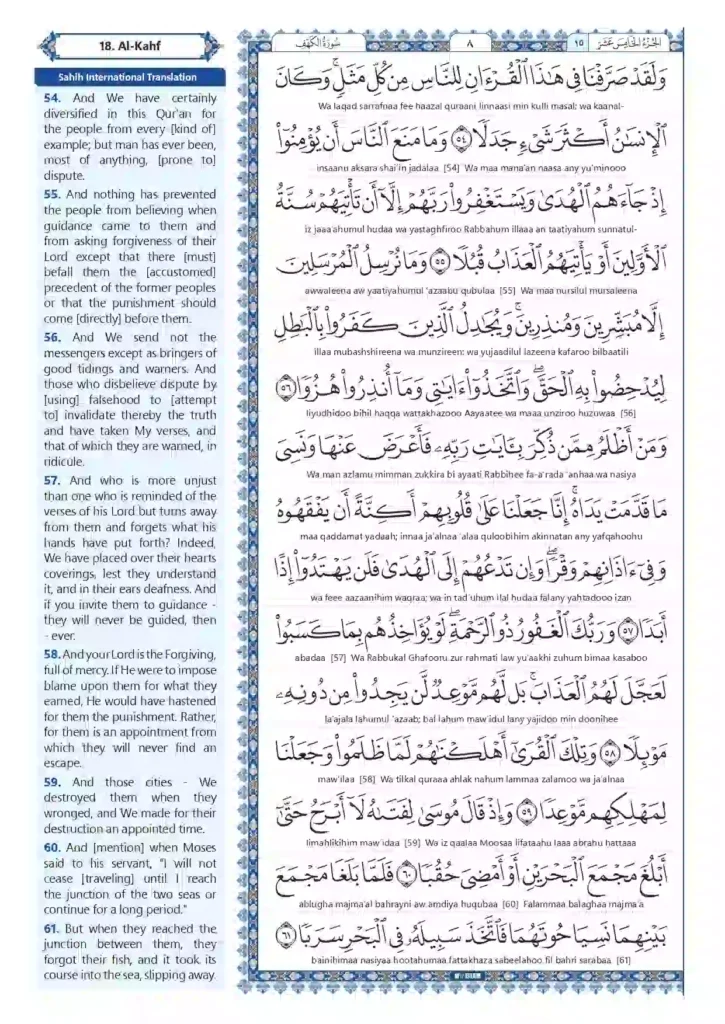 18. Al-Kahf
Sahih International Translation
54. And We have certainly
diversified in this Qur'an for
the people from every [kind of]
example; but man has ever been,
most of anything, [prone to]
dispute.
55. And nothing has prevented
the people from believing when
guidance came to them and
from asking forgiveness of their
Lord except that there [must]
befall them the [accustomed]
precedent of the former peoples
or that the punishment should
come [directly] before them.
56. And We send not the
messengers except as bringers of
good tidings and warners. And
those who disbelieve dispute by
[using] falsehood to [attempt
to] invalidate thereby the truth
and have taken My verses, and
that of which they are warned, in
ridicule.
57. And who is more unjust
than one who is reminded of the
verses of his Lord but turns away
from them and forgets what his
hands have put forth? Indeed,
We have placed over their hearts
coverings, lest they understand
it, and in their ears deafness. And
if you invite them to guidance -
they will never be guided, then
- ever.
58. And your Lord is the Forgiving,
full of mercy. If He were to impose
blame upon them for what they
earned, He would have hastened
for them the punishment. Rather,
for them is an appointment from
which they will never find an
escape.
59. And those cities - We
destroyed them when they
wronged, and We made for their
destruction an appointed time.
60. And [mention] when Moses
said to his servant, "I will not
cease [traveling] until I reach
the junction of the two seas or
continue for a long period."
61. But when they reached the
junction between them, they
forgot their fish, and it took its
course into the sea, slipping away.
الجزء الخامس عشر ١٥ ٨ سورة الكهف
وَلَقَدْ صَرَّفْنَا فِي هَٰذَا الْقُرْءَانِ لِلنَّاسِ مِن كُلِّ مَثَلٍ ۚ وَكَانَ
Wa laqad sarrafnaa fee haazal quraani linnaasi min kulli masal; wa kaanal-
الْإِنسَٰنُ أَكْثَرَ شَىْءٍ جَدَلًا ٥٤ وَمَا مَنَعَ النَّاسَ أَن يُؤْمِنُوٓا۟
insaanu aksara shai'in jadalaa [54] Wa maa mana'an naasa any yu'minooo
إِذْ جَآءَهُمُ الْهُدَىٰ وَيَسْتَغْفِرُوا۟ رَبَّهُمْ إِلَّآ أَن تَأْتِيَهُمْ سُنَّةُ
iz jaaa'ahumul hudaa wa yastaghfiroo Rabbahum illaaa an taatiyahum sunnatul-
الْأَوَّلِينَ أَوْ يَأْتِيَهُمُ الْعَذَابُ قُبُلًا ٥٥ وَمَا نُرْسِلُ الْمُرْسَلِينَ
awwaleena aw yaatiyahumul 'azaabu qubulaa [55] Wa maa nursilul mursaleena
إِلَّا مُبَشِّرِينَ وَمُنذِرِينَ ۚ وَيُجَٰدِلُ الَّذِينَ كَفَرُوا۟ بِالْبَٰطِلِ
illaa mubashshireena wa munzireen; wa yujaadilul lazeena kafaroo bilbaatili
لِيُدْحِضُوا۟ بِهِ الْحَقَّ ۖ وَاتَّخَذُوٓا۟ ءَايَٰتِى وَمَآ أُنذِرُوا۟ هُزُوًا ٥٦
liyudhidoo bihil haqqa wattakhazooo Aayaatee wa maaa unziroo huzuwaa [56]
وَمَنْ أَظْلَمُ مِمَّن ذُكِّرَ بِـَٔايَٰتِ رَبِّهِۦ فَأَعْرَضَ عَنْهَا وَنَسِىَ
Wa man azlamu mimman zukkira bi ayaati Rabbihee fa-a'rada 'anhaa wa nasiya
مَا قَدَّمَتْ يَدَاهُ ۚ إِنَّا جَعَلْنَا عَلَىٰ قُلُوبِهِمْ أَكِنَّةً أَن يَفْقَهُوهُ
maa qaddamat yadaah; innaa ja'alnaa 'alaa quloobihim akinnatan any yafqahoohu
وَفِىٓ ءَاذَانِهِمْ وَقْرًا ۖ وَإِن تَدْعُهُمْ إِلَى الْهُدَىٰ فَلَن يَهْتَدُوٓا۟ إِذًا
wa feee aazaanihim waqraa; wa in tad'uhum ilal hudaa falany yahtadooo izan
أَبَدًا ٥٧ وَرَبُّكَ الْغَفُورُ ذُو الرَّحْمَةِ ۖ لَوْ يُؤَاخِذُهُم بِمَا كَسَبُوا۟
abadaa [57] Wa Rabbukal Ghafooru zur rahmati law yu'aakhi zuhum bimaa kasaboo
لَعَجَّلَ لَهُمُ الْعَذَابَ ۚ بَل لَّهُم مَّوْعِدٌ لَّن يَجِدُوا۟ مِن دُونِهِۦ
la'ajala lahumul 'azaab; bal lahum maw'idul lany yajidoo min doonihee
مَوْئِلًا ٥٨ وَتِلْكَ الْقُرَىٰٓ أَهْلَكْنَٰهُمْ لَمَّا ظَلَمُوا۟ وَجَعَلْنَا
maw'ilaa [58] Wa tilkal quraaa ahlak nahum lammaa zalamoo wa ja'alnaa
لِمَهْلِكِهِم مَّوْعِدًا ٥٩ وَإِذْ قَالَ مُوسَىٰ لِفَتَىٰهُ لَآ أَبْرَحُ حَتَّىٰٓ
limahlikihim maw'idaa [59] Wa iz qaalaa Moosaa lifataahu laaa abrahu hattaaa
أَبْلُغَ مَجْمَعَ الْبَحْرَيْنِ أَوْ أَمْضِىَ حُقُبًا ٦٠ فَلَمَّا بَلَغَا مَجْمَعَ
ablugha majma'al bahrayni aw amdiya huqubaa [60] Falammaa balaghaa majma'a
بَيْنِهِمَا نَسِيَا حُوتَهُمَا فَاتَّخَذَ سَبِيلَهُۥ فِى الْبَحْرِ سَرَبًا ٦١
bainihimaa nasiyaa hootahumaa fattakhaza sabeelahoo fil bahri sarabaa [61]